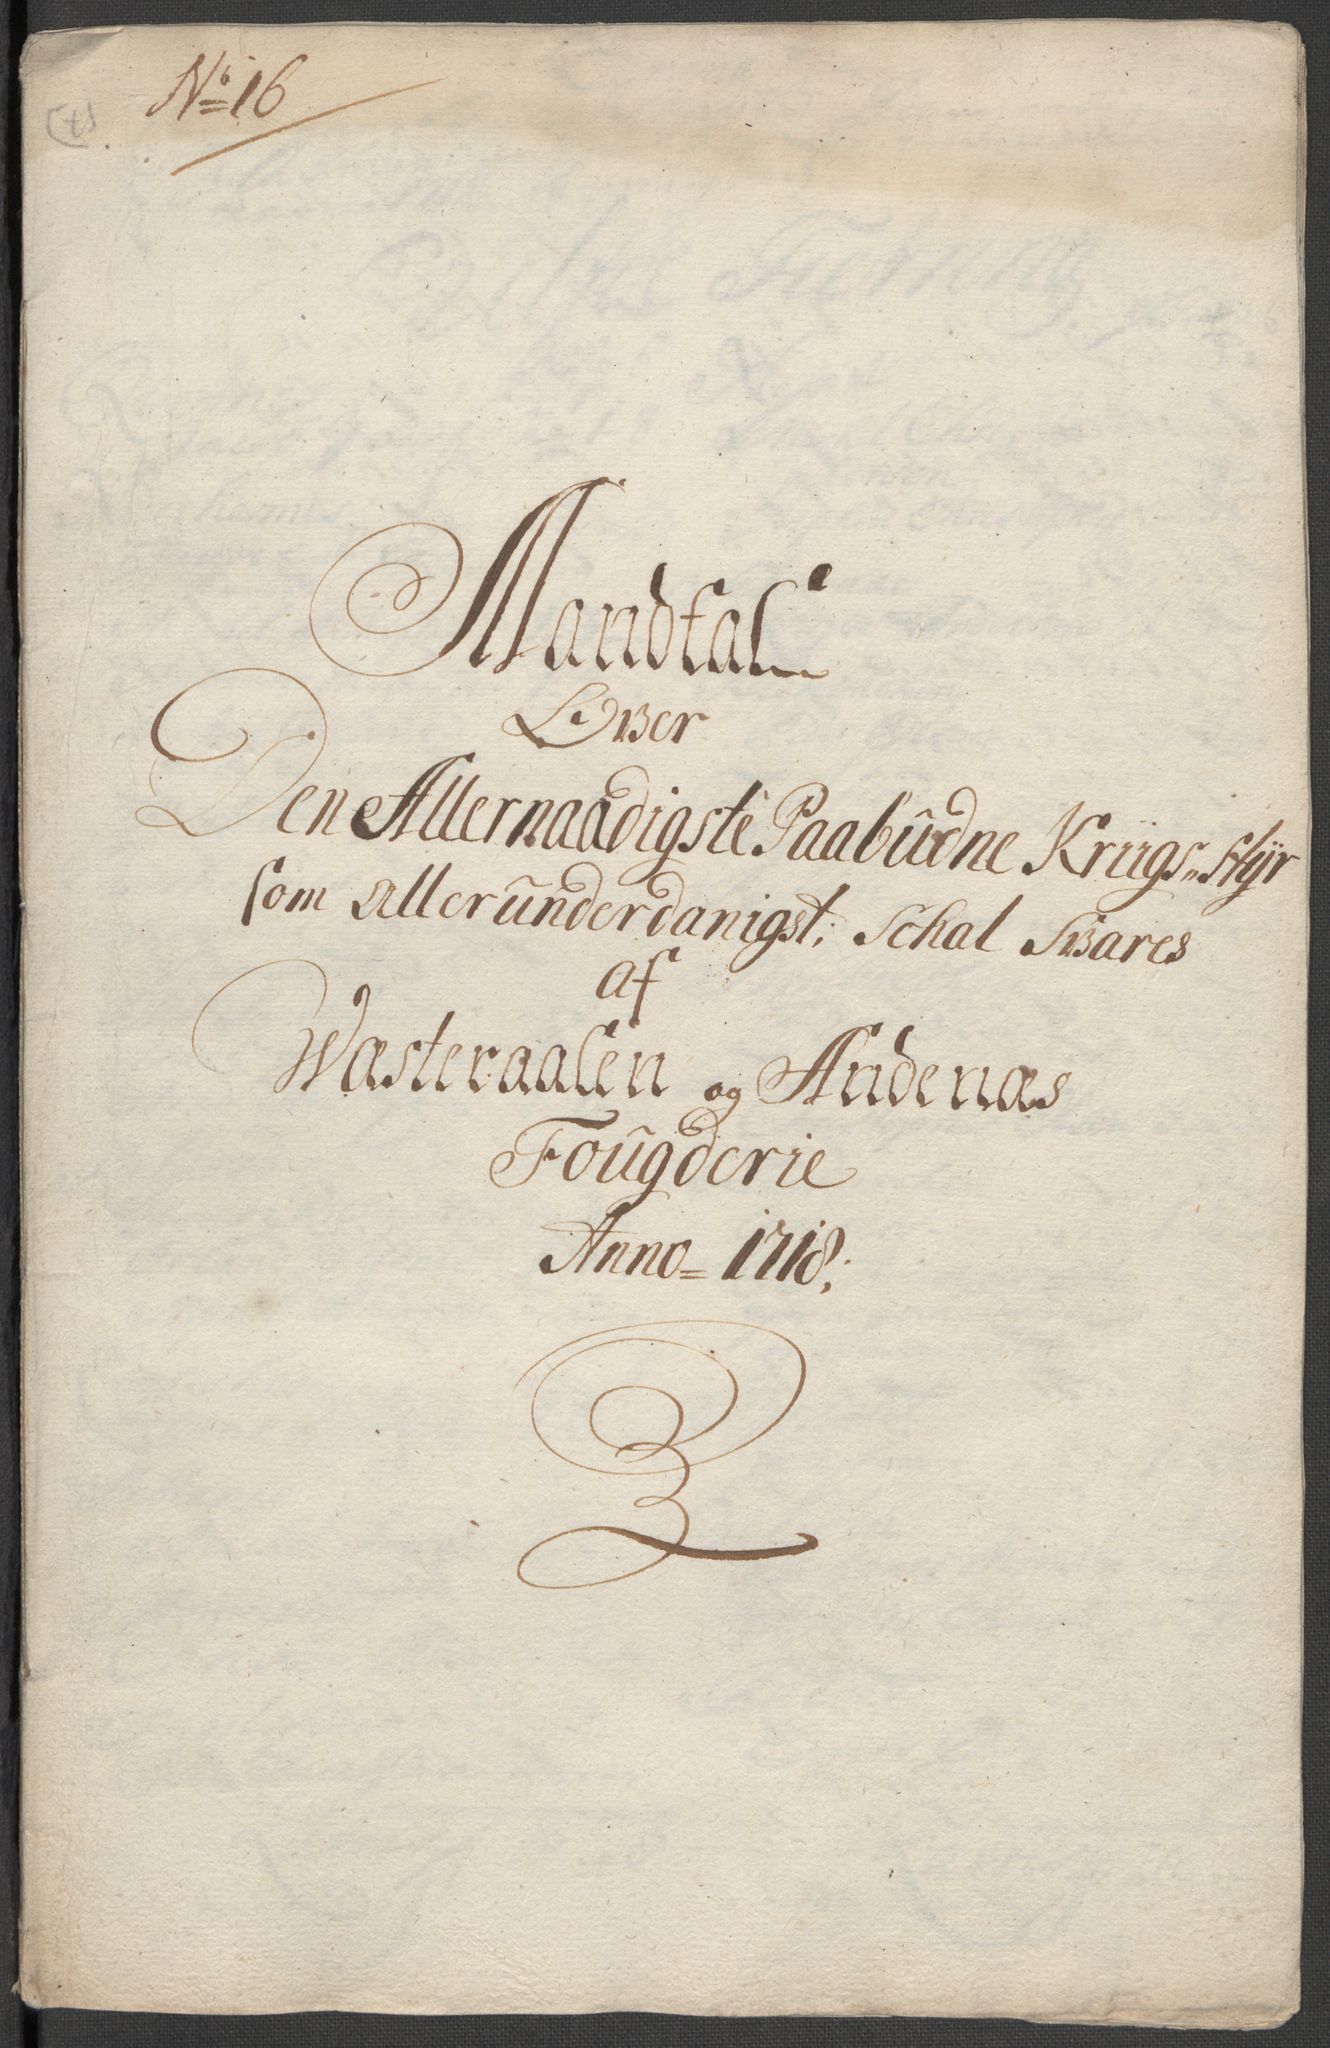 No 16
Mandtal
Over
Den Allernaadigste Paabûdne Kriigs-Styr
som Allerûnderdanigst, Schal Svares
af
Wæsteraalen og Andenæs
Foûgderie
Anno = 1718;